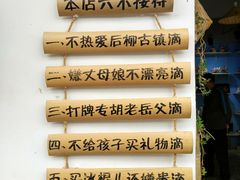 本店六不接待
一、不热爱后柳古镇滴
二、嫌丈母娘不漂亮滴
三、打牌专胡老岳父滴
四、不给孩子买礼物滴
五、买冰棍儿还嫌贵滴